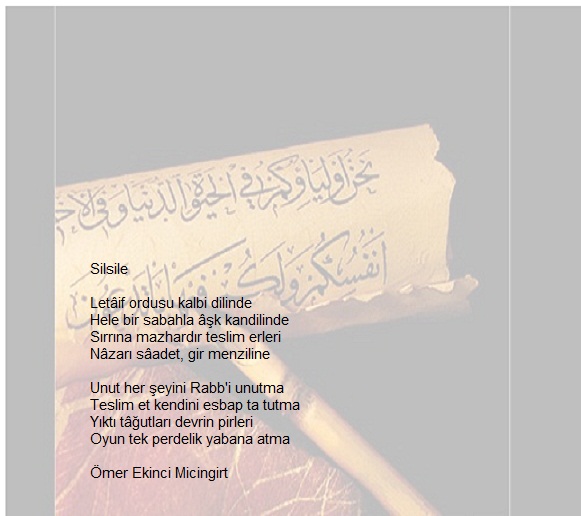 نحن أولياؤكم في الحياة الدنيا وفي الآخر
أنفسكم ولكم فيها ما تدعون
Silsile
Letâif ordusu kalbi dilinde
Hele bir sabahla âşk kandilinde
Sırrına mazhardır teslim erleri
Nâzarı sâadet, gir menziline
Unut her şeyini Rabb'i unutma
Teslim et kendini esbap ta tutma
Yıktı tâğutları devrin pirleri
Oyun tek perdelik yabana atma
Ömer Ekinci Micingirt